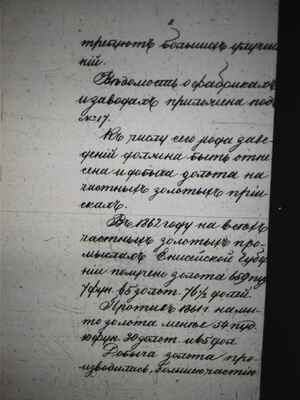 требуютъ большихъ улучше
ній.
Вѣдомость о фабрикахъ
и заводахъ приложена под
№ 17.
Къ числу сего рода заве
деній должна быть отне
сена и добыча золота на
частныхъ золотыхъ прі
искахъ.
Въ 1862 году на всѣхъ
частныхъ золотыхъ про
мыслахъ Енисейской Губер
ніи получено золота 659 пуд
7 фун. 85 золот. 76½ долей.
Противъ 1861 г. намы
то золота менѣе 54 пуд.
фун. 30 золот. и 65 дол
Добыча золота про
изводилась, большею частію